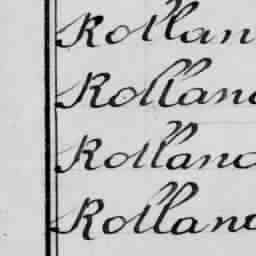 Rollan
Rolland
Rolland
Rolland